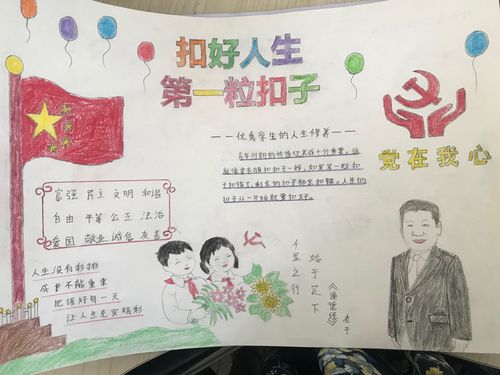 扣好人生
第一粒扣子
——优秀学生的人生修养——
青年时期的价值观养成十分重要，这
就像穿衣服扣扣子一样，如果第一粒扣
子扣错了，剩余的扣子都会扣错。人生的
扣子从一开始就要扣好。
党在我心
富强 民主 文明 和谐
自由 平等 公正 法治
爱国 敬业 诚信 友善
人生没有彩排
成长不能重来
把握好每一天
让人生充实精彩
千里之行
始于足下
《道德经》
老子